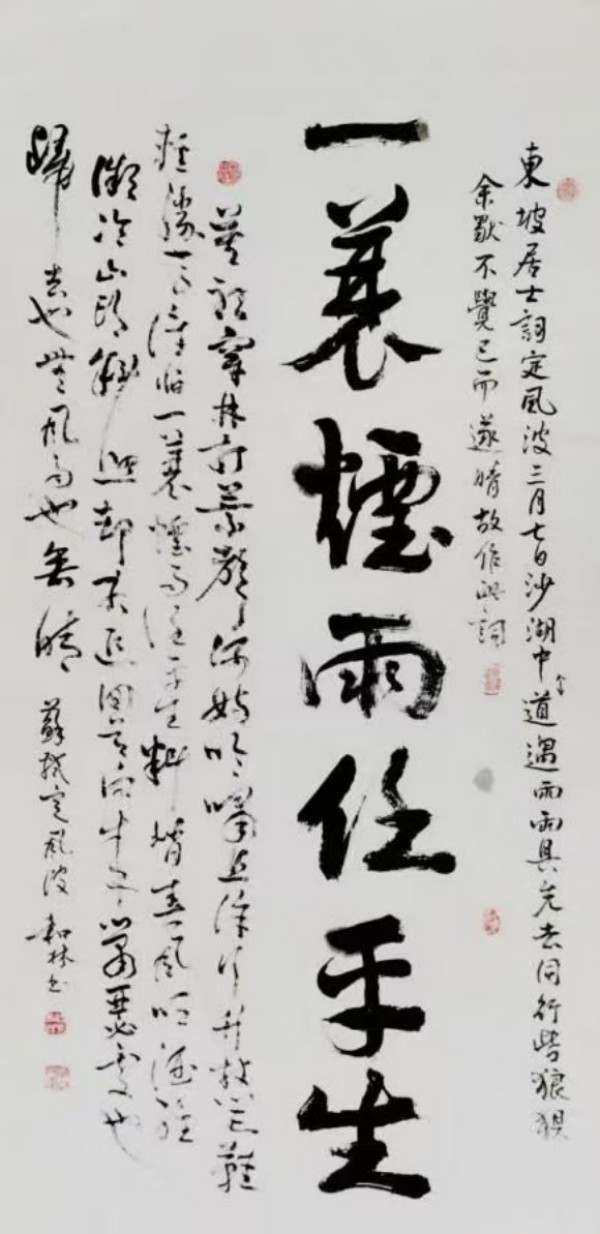 東坡居士詞定風波三月七日沙湖中道遇雨雨具先去同行皆狼狽
余獨不覺已而遂晴故作此詞
一蓑煙雨任平生
莫聽穿林打葉聲何妨吟嘯且徐行竹杖芒鞋
輕勝馬誰怕一蓑煙雨任平生料峭春風吹酒醒
微冷山頭斜照却相迎回首向來蕭瑟處也
歸去也無風雨也無晴 蘇軾定風波 和林书